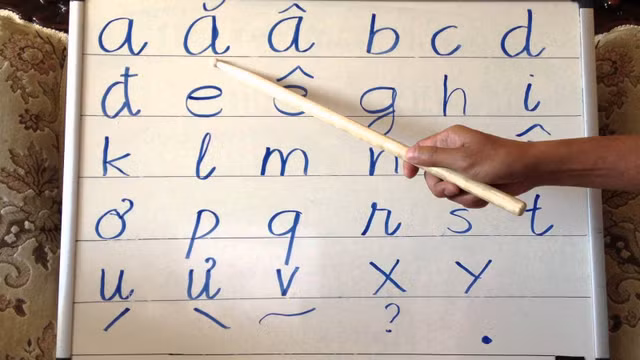 a ă â b c d
đ e ê g h i
k l m n
ơ p q r s t
u ư v x y
´ ` ~ ? .